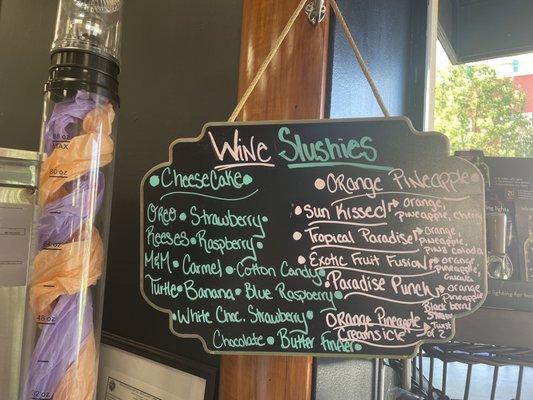 Wine Slushies
• Cheesecake •
Oreo • Strawberry •
Reeses • Raspberry •
M&M • Carmel • Cotton Candy •
Turtle • Banana • Blue Raspberry •
• White Choc. Strawberry •
Chocolate • Butter
• Orange Pineapple •
• Sun Kissed → orange,
pineapple, cherry
• Tropical Paradise → orange,
pineapple,
pina colada
• Exotic Fruit Fusion → orange,
pineapple,
• Paradise Punch → orange,
pineapple,
Black
Orange Pineapple
Creamsicle → Twist
of 2
88 oz
MAX
80 oz
48 oz
32 oz